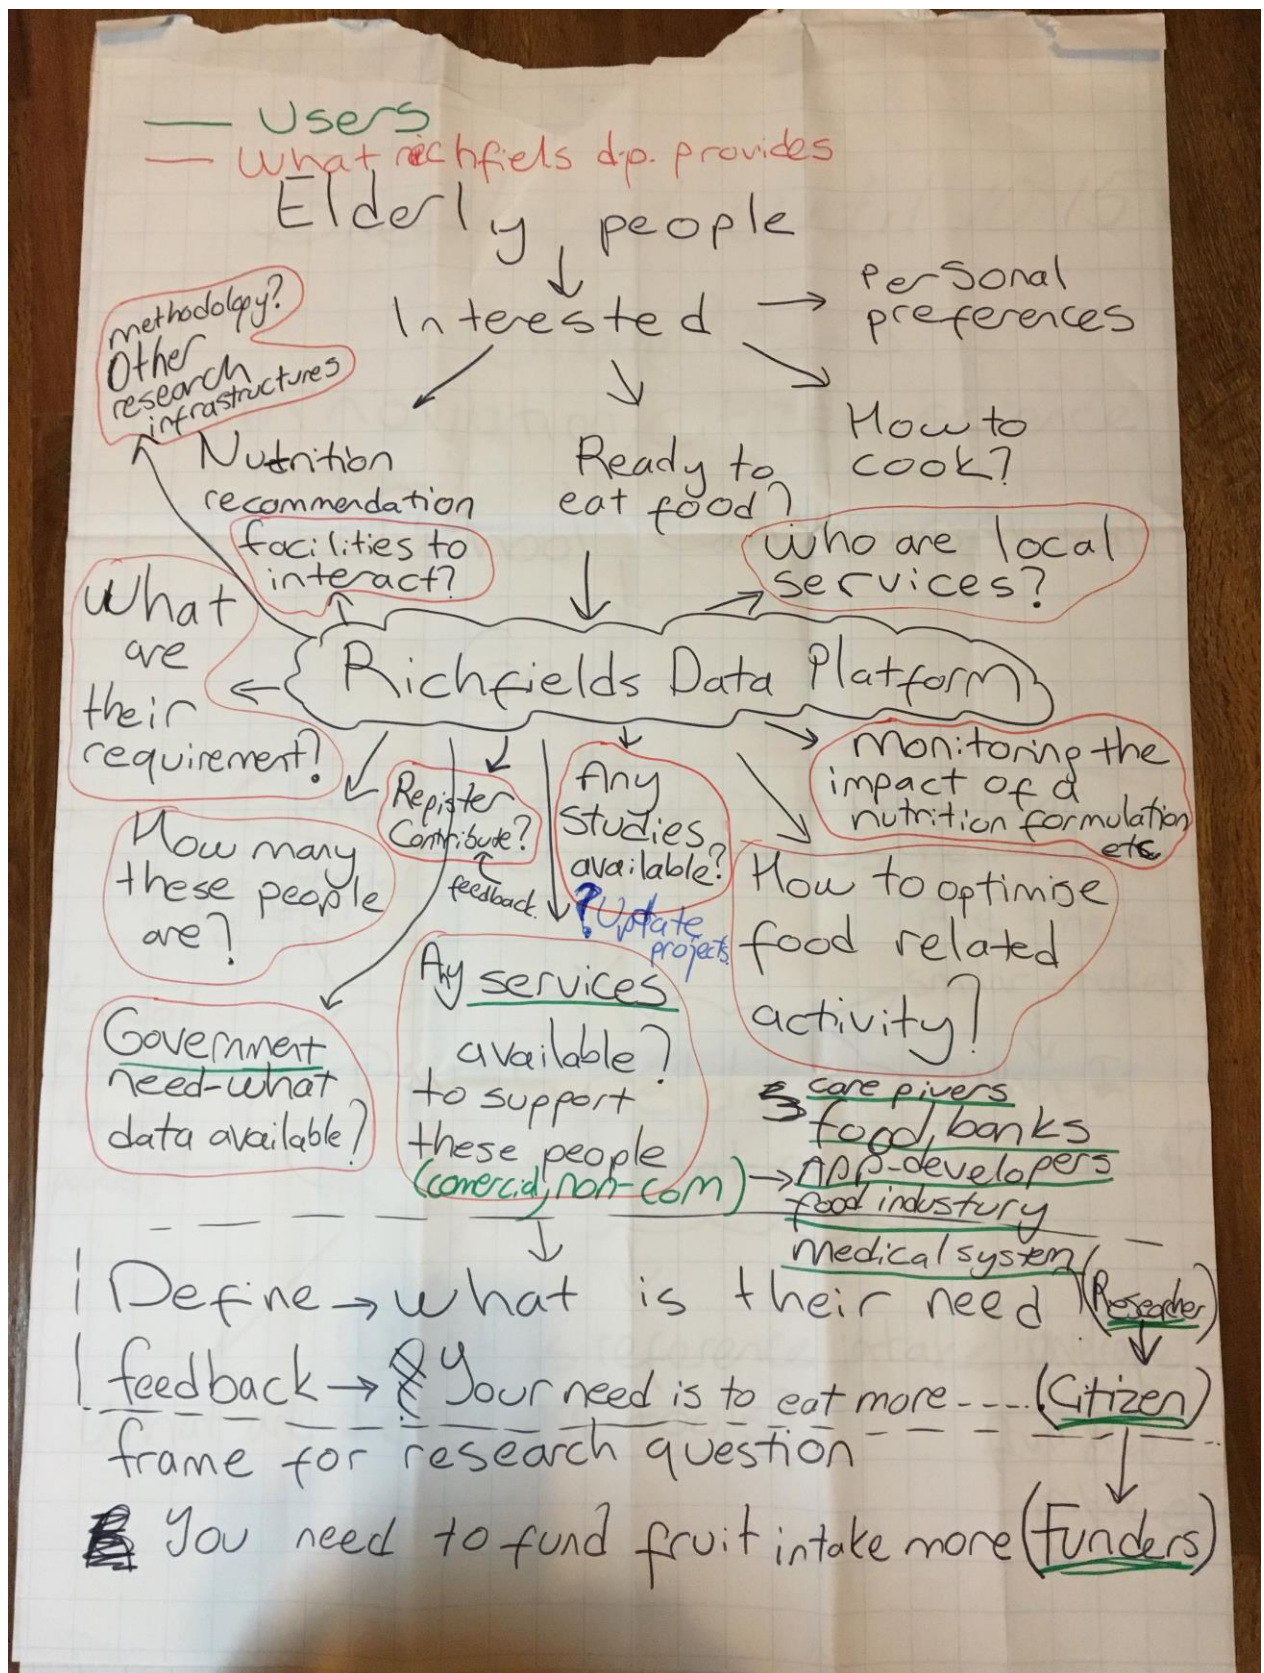 Users
What richfiels d.p. provides
Elderly people
Interested
personal
preferences
methodology?
Other
research
infrastructures
Nutrition
recommendation
Ready to
eat food?
How to
cook?
facilities to
interact?
who are local
services?
What
are
their
requirement?
Richfields Data Platform
Register
Contribute?
feedback.
Any
studies
available?
? Update
projects.
monitoring the
impact of a
nutrition formulation
etc
How many
these people
are?
How to optimise
food related
activity?
Government
need-what
data available?
Ay services
available?
to support
these people
(comercial, non-com)
care givers
food, banks
App-developers
food industury
medical system
Define → what is their need (Researcher)
feedback → Your need is to eat more---- (Citizen)
frame for research question
You need to fund fruit intake more (Funders)